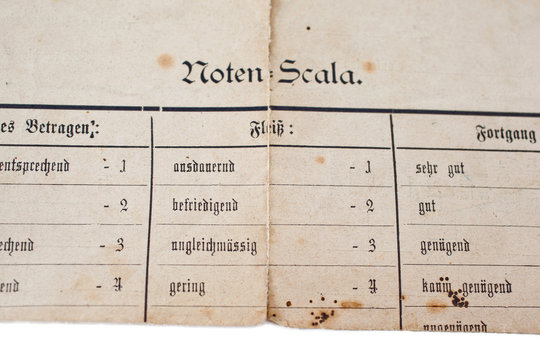 Noten-Scala.
es Betragen: Fleiß: Fortgang
entsprechend - 1 ausdauernd - 1 sehr gut
- 2 befriedigend - 2 gut
echend - 3 ungleichmässig - 3 genügend
end - 4 gering - 4 kaum genügend
ungenügend